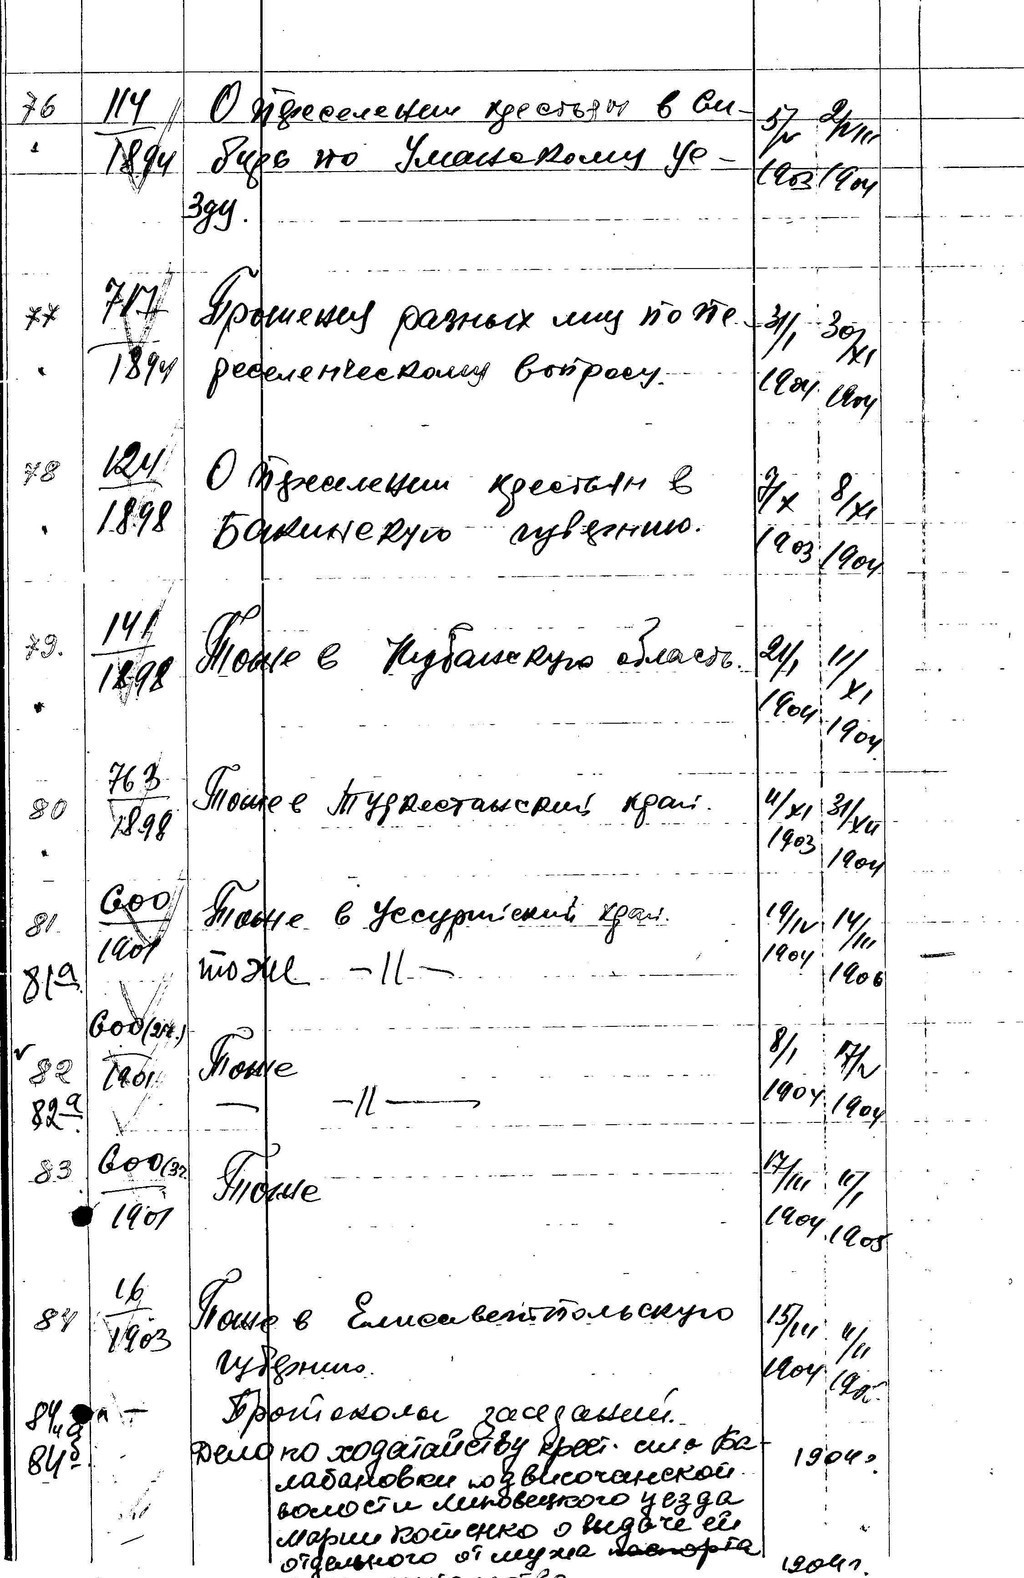 76 114 О переселении крестьян в Си- 5/V 2/VIII
1894 бирь по Уманскому уе- 1903 1904
зду.
77 717 Прошения разных лиц по пе- 31/I 30/XI
1894 реселенческому вопросу. 1904 1904
78 124 О переселении крестьян в 7/X 8/XI
1898 Бакинскую губернию. 1903 1904
79. 141 Тоже в Кубанскую область. 21/I 11/XI
1898 1904 1904
80 763 Тоже в Туркестанский край. 4/XI 31/XII
1898 1903 1904
81. 600 Тоже в Уссурийский край. 19/IV 14/III
1901 1904 1906
81а тоже —//—
82 600(2т.) Тоже 8/I 17/V
1901 1904 1904
82а — —//—
83 600(3т. Тоже 17/III 11/I
1901 1904 1905
84 16 Тоже в Елисаветпольскую 15/III 4/II
1903 губернию. 1904 190
84а — Протоколы заседаний.
84б Дело по ходатайству крест. села Ба- 1904г.
лабановки
волости Липовецкого уезда
Марии Котенко о выдаче ей
отдельного от мужа паспорта 1904г.